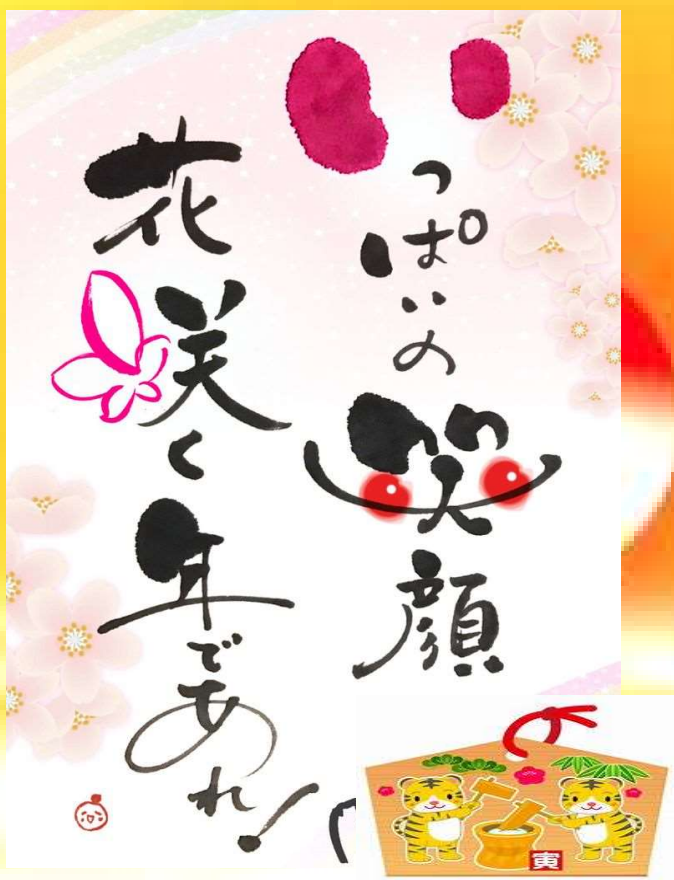 いっぱいの笑顔
花咲く年であれ!
寅